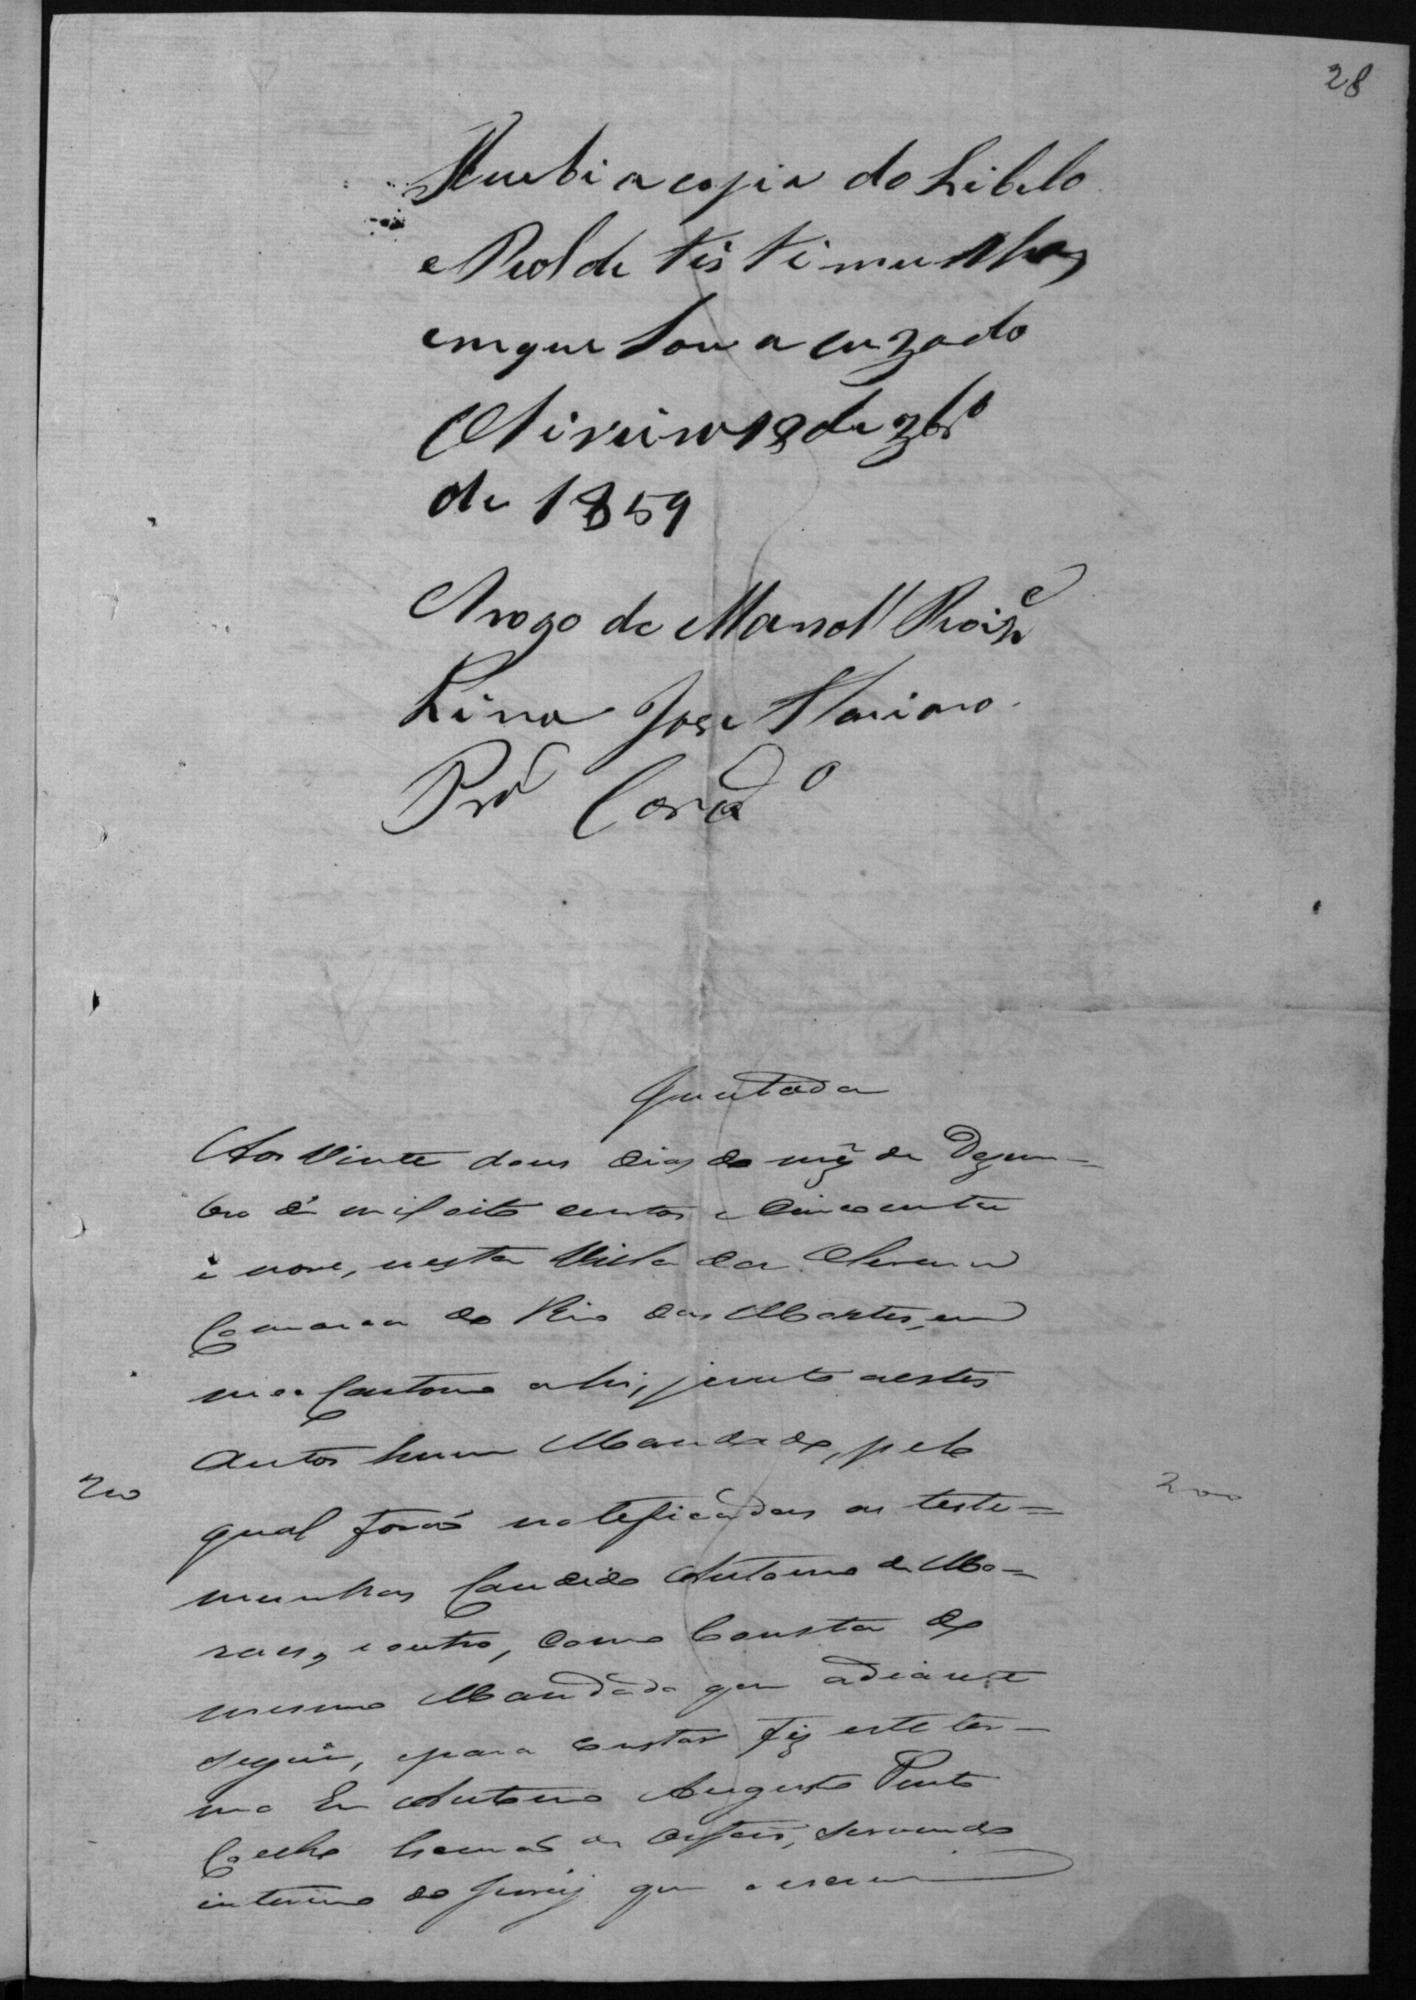 28
Recebi a copia do Libelo
e Rol de tistimunhas
emque Sou a cuzado
Oliveira 18 de xbr.o
de 1859
Arogo de Manoel Roiz
Lima José Mariano
Juntada
Aos Vinte dous dias do mez de Dezem=
bro de mil oito centos e Cincoenta
e nove, nesta Villa da Oliveira
Comarca do Rio das Mortes, em
meo Cartorio ahi, junto aestes
autos hum Mandado, pelo
200
qual foraõ noteficadas as teste=
200
munhas Candido Antonio de Mo=
raes, e outro, como Consta do
mesmo Mandado que adiante
segue, epara constar fiz este ter=
mo Eu Antonio Augusto Pinto
Coelho Escrivaõ de Orfaõs, servindo
interino do Jury que o escrevi